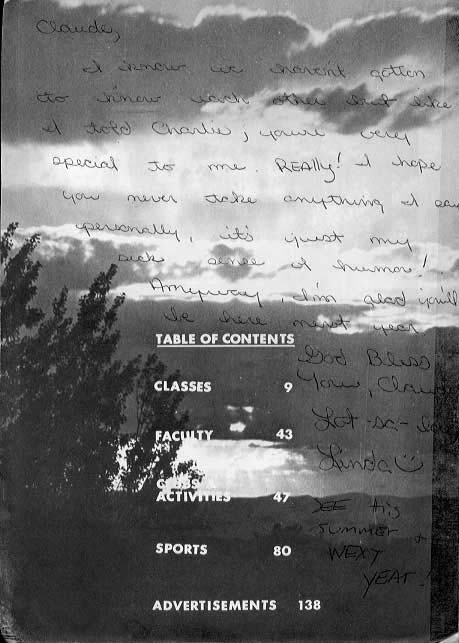 Claude,
I know we haven't gotten
to know each other but like
I told Charlie, you're very
special to me. REAlly! I hope
you never take anything I say
personally, it's just my
sick sense of humor!
Anyway, I'm glad you'll
be here next year
TABLE OF CONTENTS
God Bless
You, Claude
CLASSES 9
Lot-sa-
FACULTY 43
Linda
ACTIVITIES 47
SEE this
summer +
SPORTS 80
WEXY
YEAT!
ADVERTISEMENTS 138